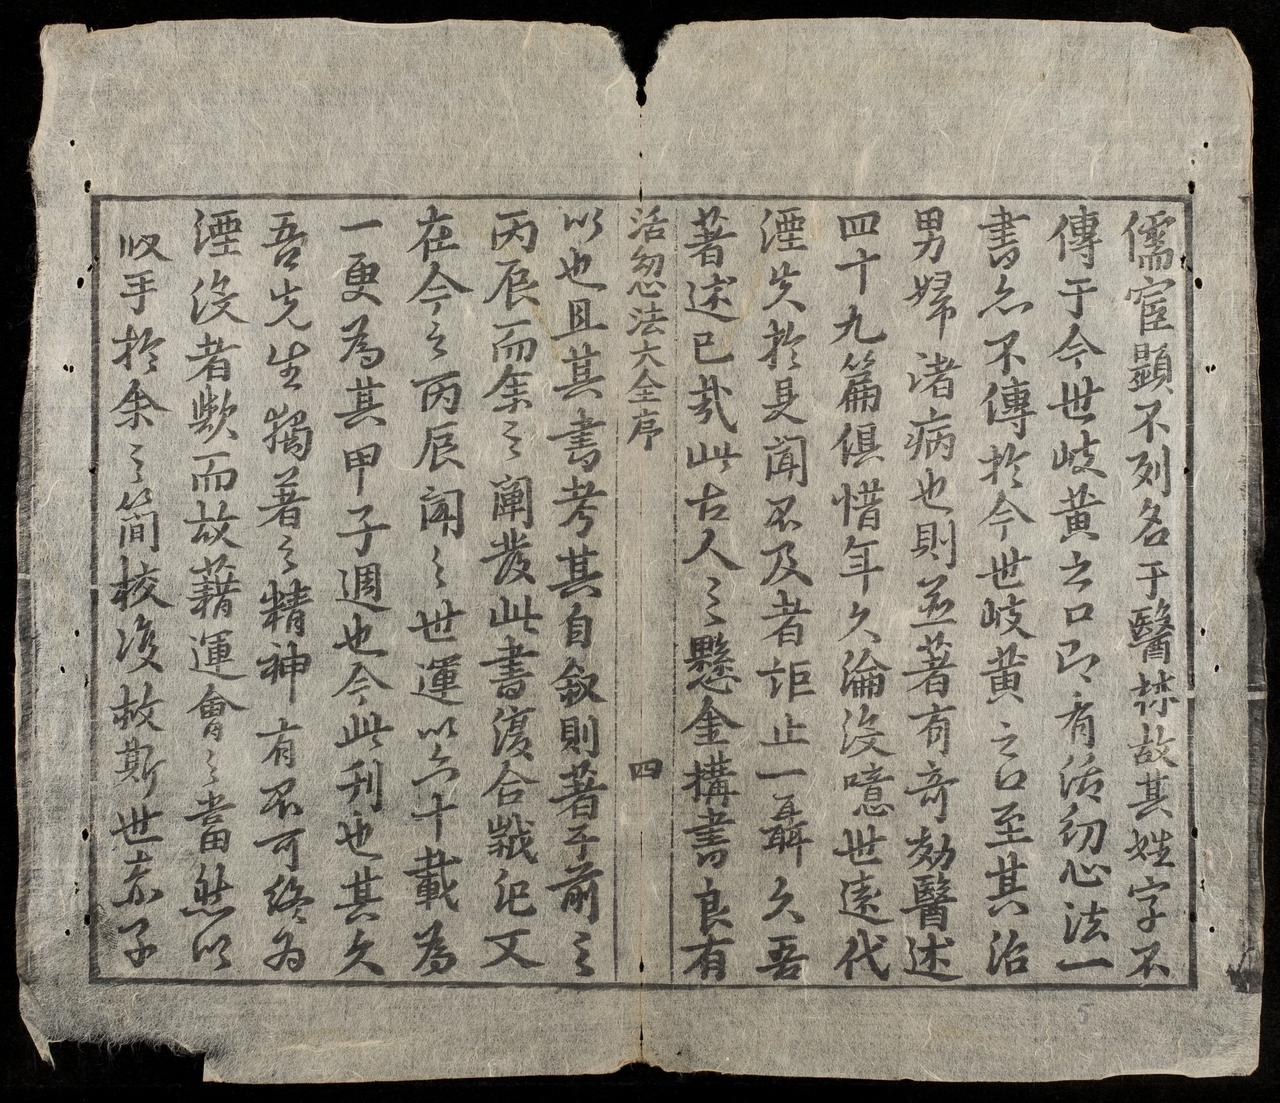 儒宦顯不列名于醫林故其姓字不
傳于今世岐黄之口即有活幼心法一
書亦不傳於今世岐黄之口至其治
男婦渚病也則並著有奇効醫述
四十九篇俱惜年久淪没噫世遠代
湮失於見聞不及者詎止一聶久吾
著述已哉此古人之懸金構書良有
活幼心法大全序
四
以也且其書考其自敘則著于前之
丙辰而余之闡發此書復合戢記又
在今之丙辰聞之世運以六十載為
一更為其甲子週也今此刊也其久
吾先生獨著之精神有不可終为
湮没者歟而故藉運會之當然以
収手於余之簡校没故斯世赤子
5